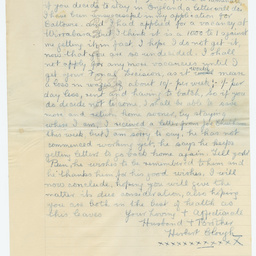 if you decide to stay in England, a
I have been unsuccessful in my application for
but I had applied for a vacancy at
But I think it is a 1000 to 1 against
me getting it, in fact I hope I do not get it,
now that you are so undecided. I shall
not apply for any more vacancies until I
get your final decision, as it would mean
a loss in wages of about 10/- per week & if
day less, and I having to batch, so if you
do decide not to come I shall be able to save
more and return home sooner, by stopping
where I am. I received a letter from
this week but I am sorry to say, he has not
commenced working yet, he says he keeps
getting letters to go back home again. Tell your
he wishes to be remembered to him and
he thanks him for his good wishes. I will
now conclude, hoping you will give the
matter its due consideration, also hoping
you are both in the best of health as
this leaves Your Loving & Affectionate
Husband & Father
Herbert Clough
xxxxxxxxxx